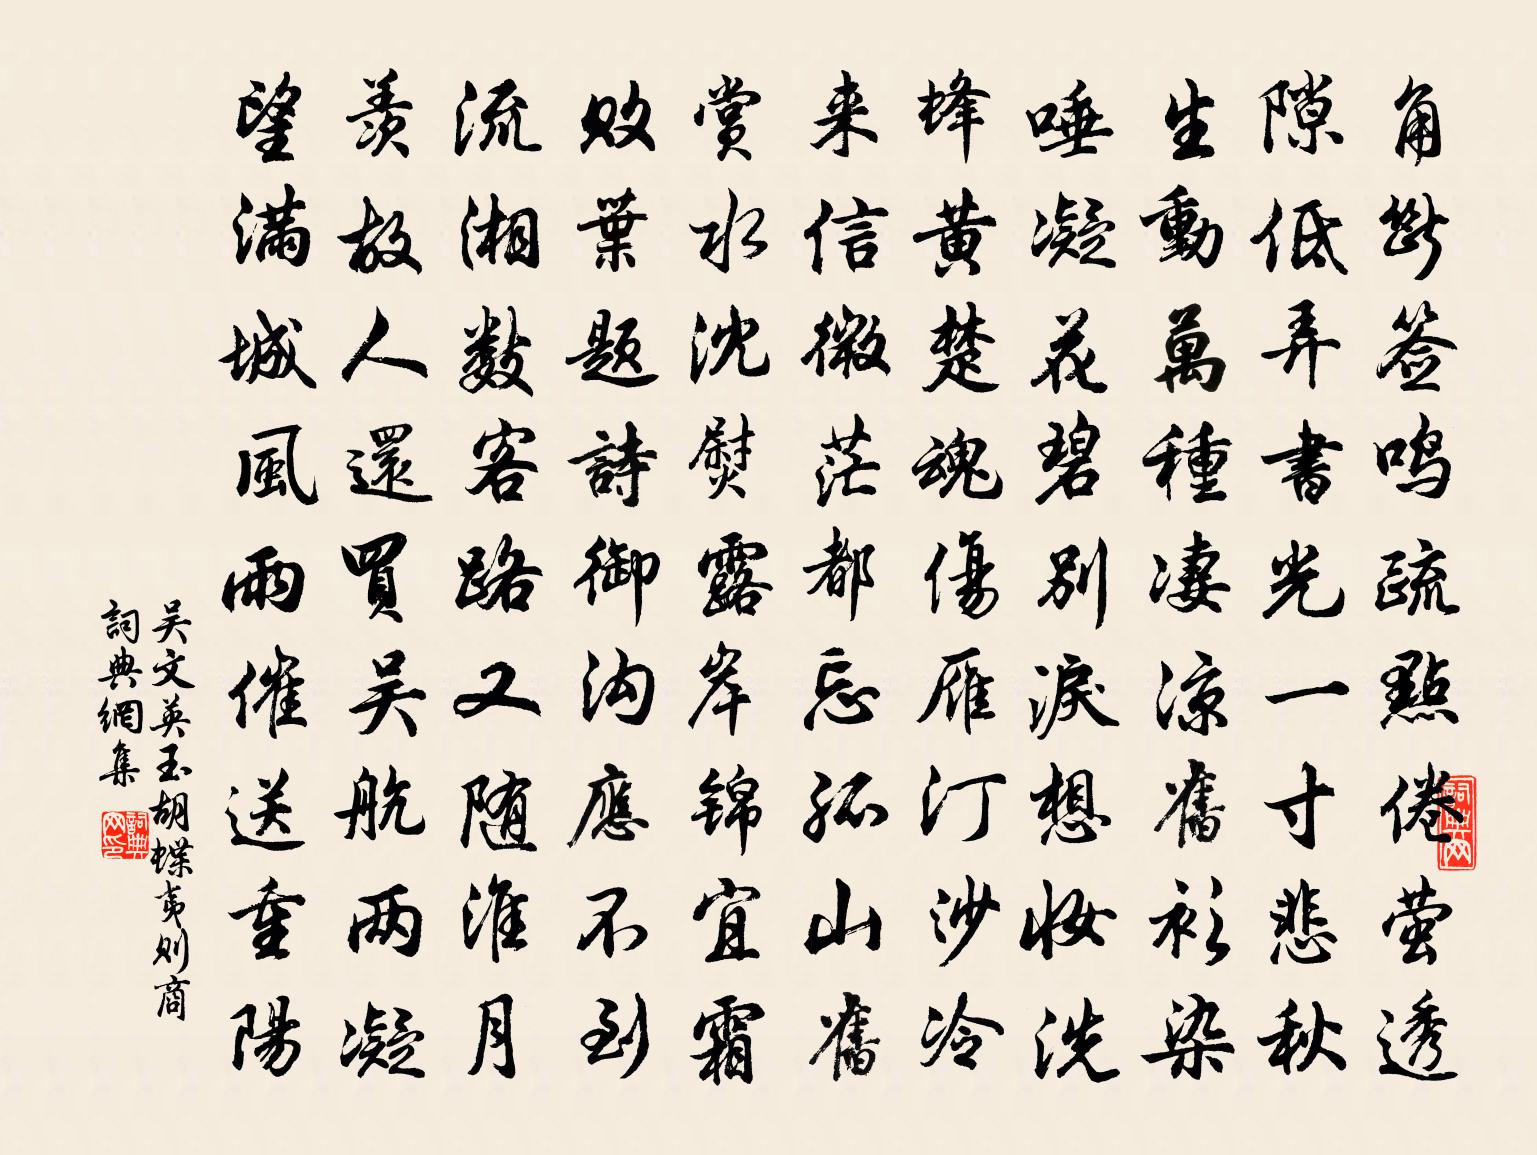 角斷签鸣疏點倦萤透
隙低弄書光一寸悲秋
生動萬種凄涼舊衫染
唾凝花碧別淚想妝洗
蜂黃楚魂傷雁汀沙冷
来信微茫都忘孤山舊
賞水沈熨露岸锦宜霜
败葉题詩御沟應不到
流湘数客路又随淮月
羨故人還買吴航两凝
望滿城風雨催送重陽
吴文英玉胡蝶夷则商
詞典網集
詞典网
詞典网印